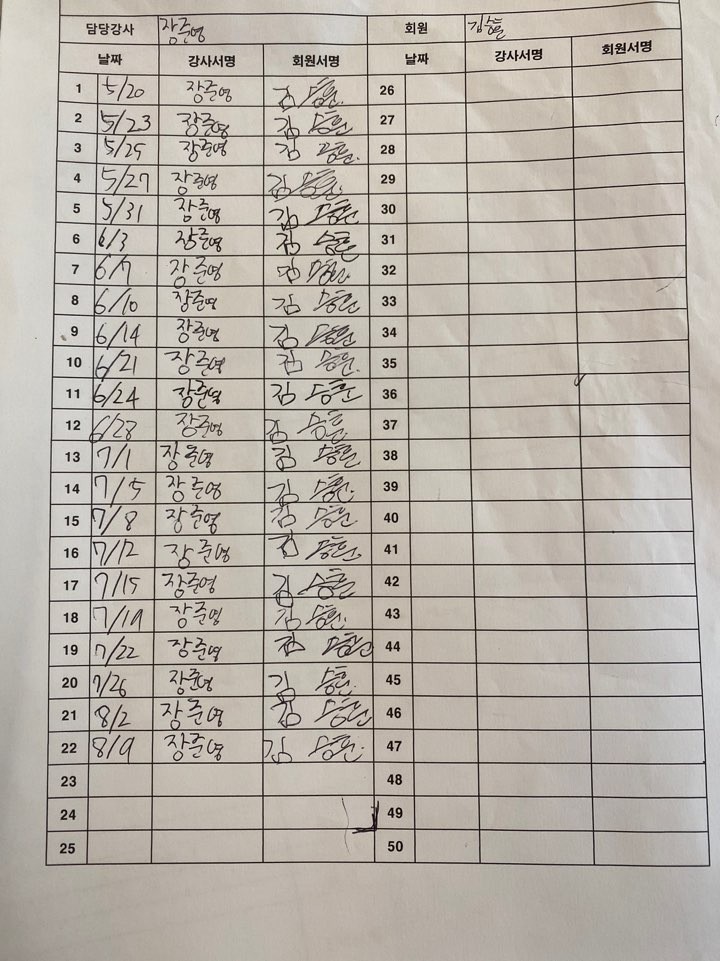 담당강사 장준영 회원 김승훈
날짜 강사서명 회원서명 날짜 강사서명 회원서명
1 5/20 장준영 김승훈 26
2 5/23 장준영 김승훈 27
3 5/25 장준영 김승훈 28
4 5/27 장준영 김승훈 29
5 5/31 장준영 김승훈 30
6 6/3 장준영 김승훈 31
7 6/7 장준영 김승훈 32
8 6/10 장준영 김승훈 33
9 6/14 장준영 김승훈 34
10 6/21 장준영 김승훈 35
11 6/24 장준영 김승훈 36
12 6/28 장준영 김승훈 37
13 7/1 장준영 김승훈 38
14 7/5 장준영 김승훈 39
15 7/8 장준영 김승훈 40
16 7/12 장준영 김승훈 41
17 7/15 장준영 김승훈 42
18 7/19 장준영 김승훈 43
19 7/22 장준영 김승훈 44
20 7/26 장준영 김승훈 45
21 8/2 장준영 김승훈 46
22 8/9 장준영 김승훈 47
23 48
24 49
25 50